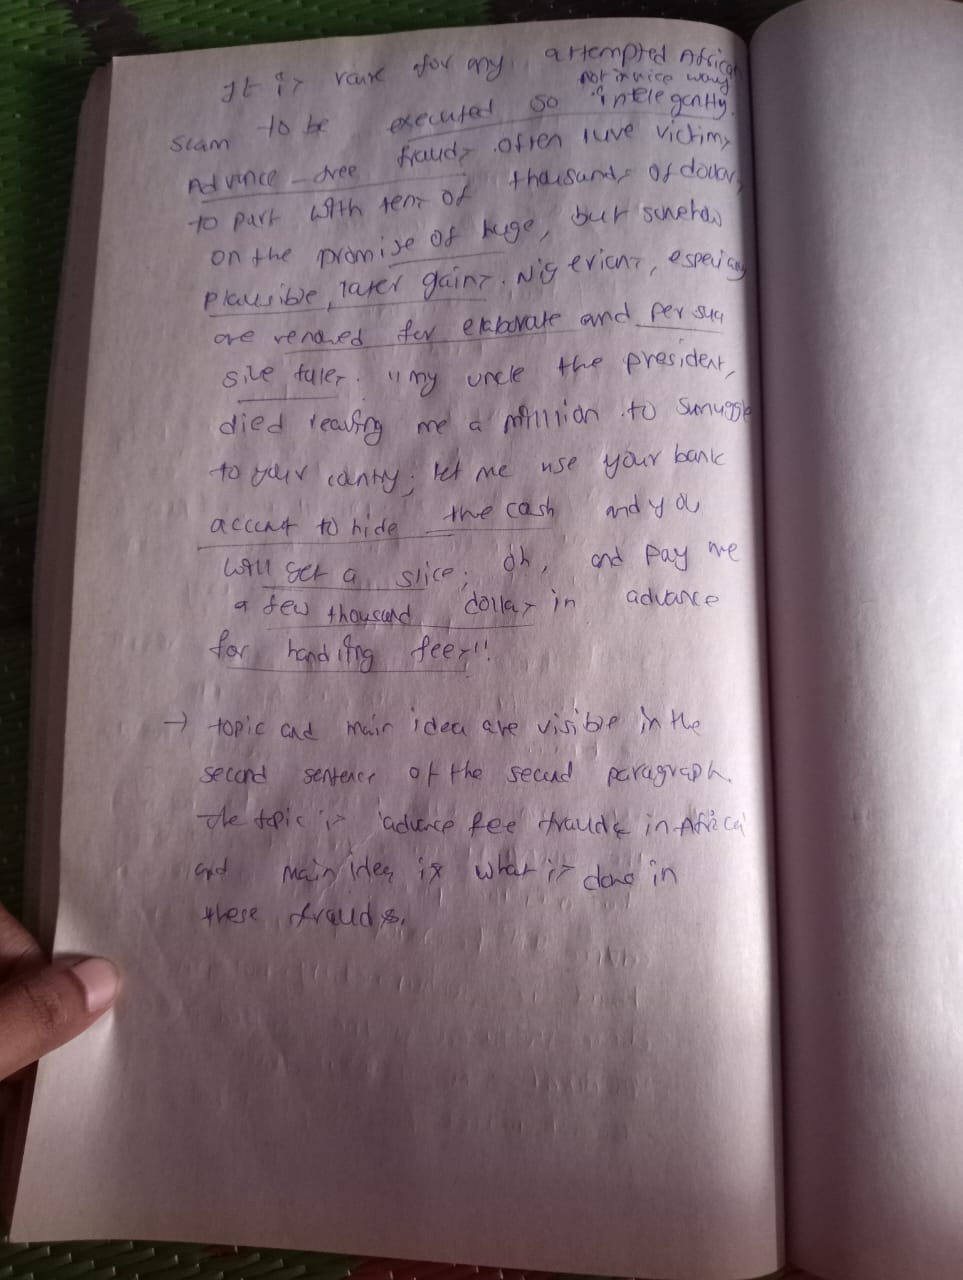 It is rare for any attempted Africa
not in nice way
scam to be executed so intelegently.
Advance-free frauds often lure victims
to part with tens of thousands of dollar,
on the promise of huge, but somehow
plausible, later gains. Nigerians, especially
are renowed for elaborate and persua
sive tales. "my uncle the president,
died leaving me a million to smuggle
to your country; let me use your bank
account to hide the cash and you
will get a slice; oh, and pay me
a few thousand dollars in advance
for handling fees".
→ topic and main idea are visible in the
second sentence of the second paragraph.
The topic is 'advance fee frauds in Africa'
and main idea is what is done in
these frauds.